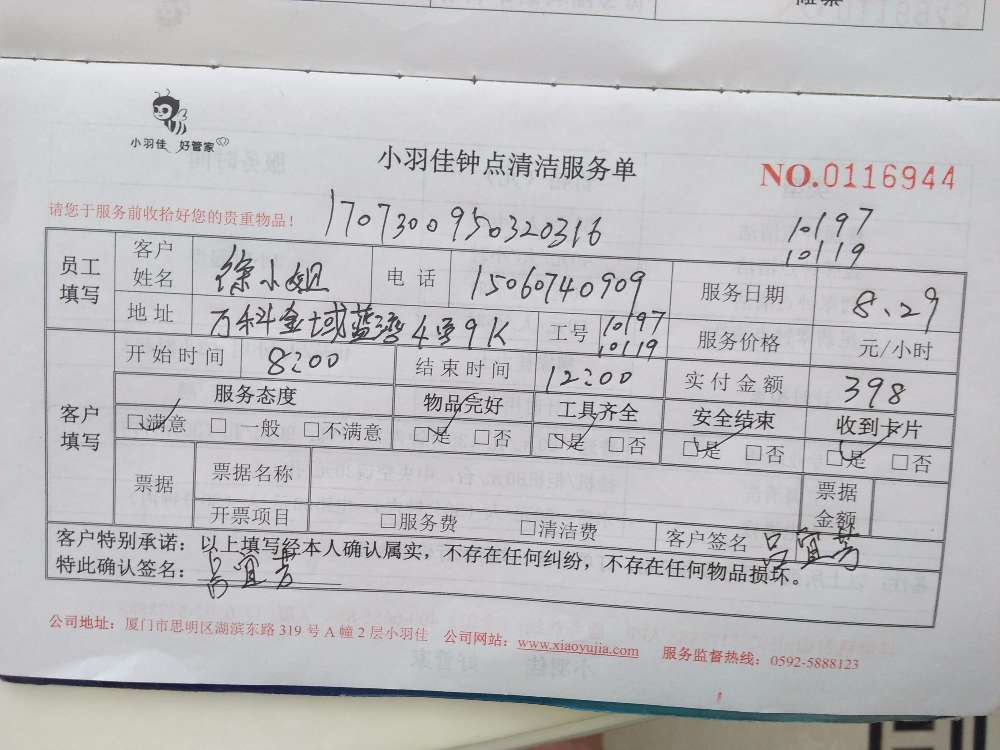 小羽佳 好管家
小羽佳钟点清洁服务单
NO.0116944
请您于服务前收拾好您的贵重物品！
170730095032031​6
10197
10119
员工填写 客户姓名 徐小姐 电话 15060740909 服务日期 8.29
地址 万科金域蓝湾4号9K 工号 10197 10119 服务价格 元/小时
客户填写 开始时间 8:00 结束时间 12:00 实付金额 398
服务态度 物品完好 工具齐全 安全结束 收到卡片
☑满意 □一般 □不满意 ☑是 □否 ☑是 □否 ☑是 □否 ☑是 □否
票据 票据名称 票据金额
开票项目 □服务费 □清洁费 客户签名 吕宜芳
客户特别承诺：以上填写经本人确认属实，不存在任何纠纷，不存在任何物品损坏。
特此确认签名：吕宜芳
公司地址：厦门市思明区湖滨东路 319 号 A 幢 2 层小羽佳 公司网站：www.xiaoyujia.com 服务监督热线：0592-5888123